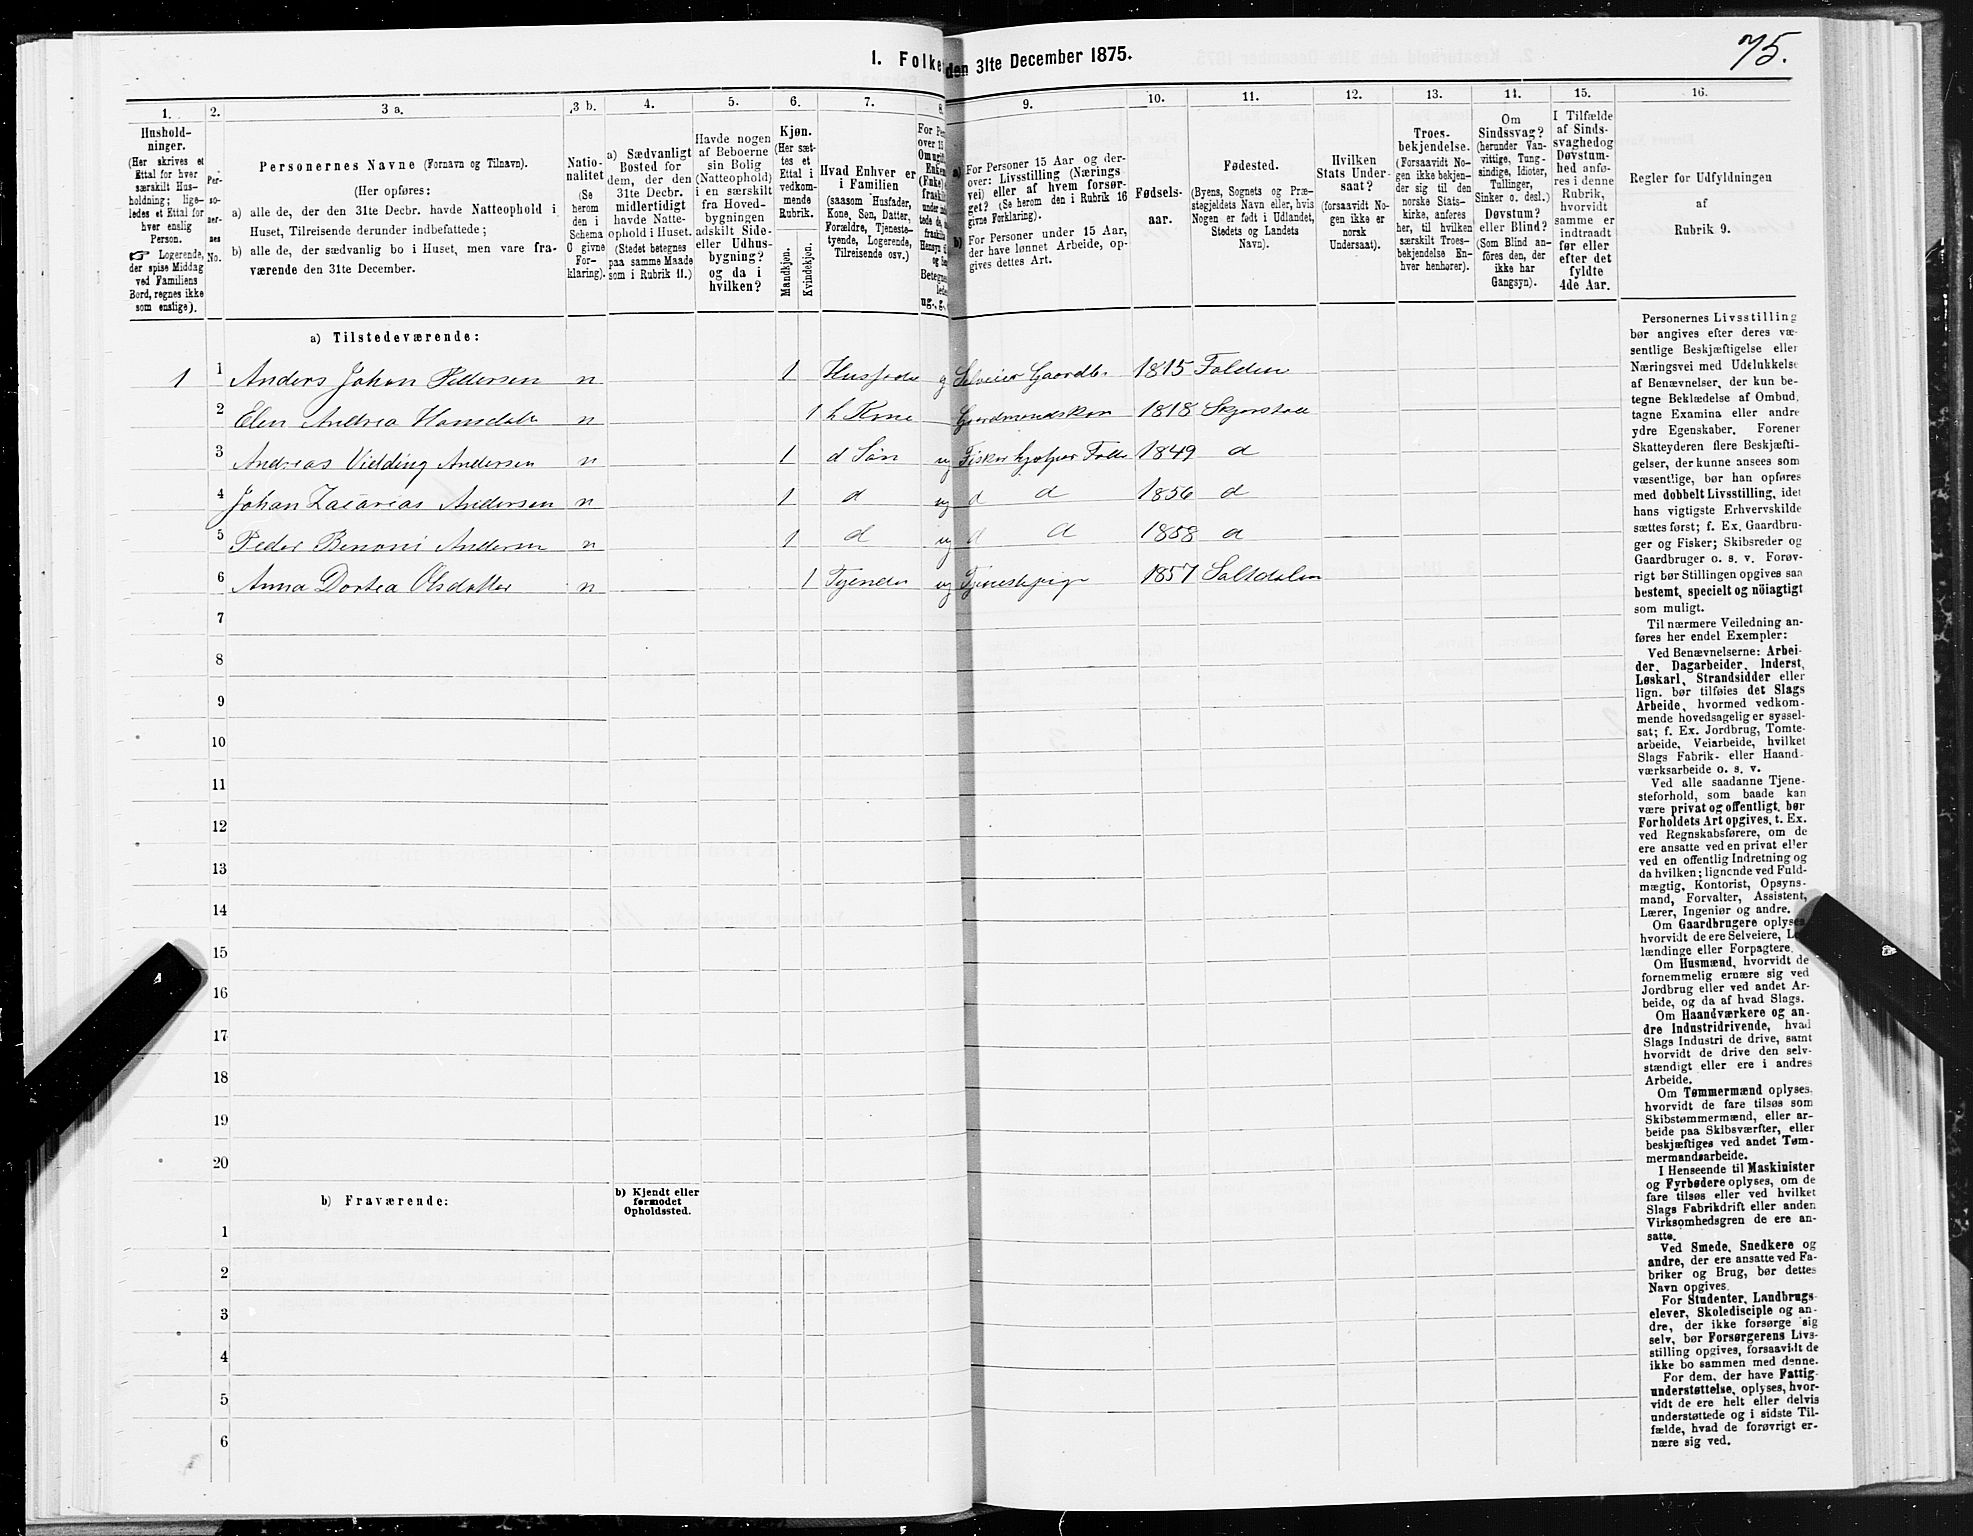 75.
I. Folke den 31te December 1875.
1. 2. 3 a. 3 b. 4. 5. 6. 7. 8. 9. 10. 11. 12. 13. 14. 15. 16.
Hushold-
ninger.
(Her skrives et
Ettal for hver
særskilt Hus-
holdning; lige-
ledes et Ettal for
hver enslig
Person.
☞ Logerende,
der spise Middag
ved Familiens
Bord, regnes ikke
som enslige).
Per-
so-
ner-
nes
No.
Personernes Navne (Fornavn og Tilnavn).
(Her opføres:
a) alle de, der den 31te Decbr. havde Natteophold i
Huset, Tilreisende derunder indbefattede;
b) alle de, der sædvanlig bo i Huset, men vare fra-
værende den 31te December.
Natio-
nalitet
(Se
herom
den i
Schema
C givne
For-
klaring).
a) Sædvanligt
Bosted for
dem, der den
31te Decbr.
midlertidigt
havde Natte-
ophold i Huset.
(Stedet betegnes
paa samme Maade
som i Rubrik 11.)
Havde nogen
af Beboerne
sin Bolig
(Natteophold)
i en særskilt
fra Hoved-
bygningen
adskilt Side-
eller Udhus-
bygning?
og da i
hvilken?
Kjøn.
(Her sæt-
tes et
Ettal i
vedkom-
mende
Rubrik.
Mandkjøn.
Kvindekjøn.
Hvad Enhver er
i Familien
(saasom Husfader,
Kone, Søn, Datter,
Forældre, Tjeneste-
tyende, Logerende,
Tilreisende osv.)
a) For Personer 15 Aar og der-
over: Livsstilling (Nærings
vei) eller af hvem forsør-
get? (Se herom den i Rubrik 16
givne Forklaring).
b) For Personer under 15 Aar,
der have lønnet Arbeide, op-
gives dettes Art.
Fødsels-
aar.
Fødested.
(Byens, Sognets og Præ-
stegjeldets Navn eller, hvis
Nogen er født i Udlandet,
Stedets og Landets
Navn).
Hvilken
Stats Under-
saat?
(forsaavidt No-
gen ikke er
norsk
Undersaat).
Troes-
bekjendelse.
(Forsaavidt No-
gen ikke bekjen-
der sig til den
norske Stats-
kirke, anføres
her, til hvilken
særskilt Troes-
bekjendelse En-
hver henhører).
Om
Sindssvag?
(herunder Van-
vittige, Tung-
sindige, Idioter,
Tullinger,
Sinker o. desl.)
Døvstum?
eller Blind?
(Som Blind an-
føres den, der
ikke har
Gangsyn).
I Tilfælde
af Sinds-
svaghed og
Døvstum-
hed anfø-
res i denne
Rubrik,
hvorvidt
samme er
indtraadt
før eller
efter det
fyldte
4de Aar.
Regler for Udfyldningen
af
Rubrik 9.
a) Tilstedeværende:
1 1 Anders Johan Pettersen n 1 Husfader g Selveier Gaardbr 1815 Folden
2 Elen Andrea Hansdatr n 1 h Kone Gaardmandskon 1818 Skjerstad
3 Andreas Vidding Andersen n 1 d Søn ug Fisker hjelper Fader 1849 d
4 Johan Zacarias Andersen n 1 d ug d d 1856 d
5 Peder Benoni Andersen n 1 d ug d d 1858 d
6 Anna Dortea Olsdatter n 1 Tjender ug Tjenestepige 1857 Saltdalen
7
8
9
10
11
12
13
14
15
16
17
18
19
20
b) Fraværende:
b) Kjendt eller
formodet
Opholdssted.
1
2
3
4
5
6
Personernes Livsstilling
bør angives efter deres væ-
sentlige Beskjæftigelse eller
Næringsvei med Udelukkelse
af Benævnelser, der kun be-
tegne Beklædelse af Ombud,
tagne Examina eller andre
ydre Egenskaber. Forener
Skatteyderen flere Beskjæfti-
gelser, der kunne ansees som
væsentlige, bør han opføres
med dobbelt Livsstilling, idet
hans vigtigste Erhvervskilde
sættes først; f. Ex. Gaardbru-
ger og Fisker; Skibsreder og
Gaardbruger o. s. v. Forøv-
rigt bør Stillingen opgives saa
bestemt, specielt og nöiagtigt
som muligt.
Til nærmere Veiledning an-
føres her endel Exempler:
Ved Benævnelserne: Arbei-
der, Dagarbeider, Inderst,
Løskarl, Strandsidder eller
lign. bør tilføies det Slags
Arbeide, hvormed vedkom-
mende hovedsagelig er syssel-
sat; f. Ex. Jordbrug, Tomte-
arbeide, Veiarbeide, hvilket
Slags Fabrik- eller Haand-
værksarbeide o. s. v.
Ved alle saadanne Tjene-
steforhold, som baade kan
være privat og offentligt, bør
Forholdets Art opgives, t. Ex.
ved Regnskabsførere, om de
ere ansatte ved en privat eller
ved en offentlig Indretning og
da hvilken; lignende ved Fuld-
mægtig, Kontorist, Opsyns-
mand, Forvalter, Assistent,
Lærer, Ingeniør og andre.
Om Gaardbrugere oplyses,
hvorvidt de ere Selveiere, Lei-
lændinge eller Forpagtere.
Om Husmænd, hvorvidt de
fornemmelig ernære sig ved
Jordbrug eller ved andet Ar-
beide, og da af hvad Slags.
Om Haandværkere og an-
dre Industridrivende, hvad
Slags Industri de drive, samt
hvorvidt de drive den selv-
stændigt eller ere i andres
Arbeide.
Om Tømmermænd oplyses,
hvorvidt de fare tilsøs som
Skibstømmermænd, eller ar-
beide paa Skibsværfter, eller
beskjæftiges ved andet Tøm-
mermandsarbeide.
I Henseende til Maskinister
og Fyrbødere oplyses, om de
fare tilsøs eller ved hvilket
Slags Fabrikdrift eller anden
Virksomhedsgren de ere an-
satte.
Ved Smede, Snedkere og
andre, der ere ansatte ved Fa-
briker og Brug, bør dettes
Navn opgives.
For Studenter, Landbrugs-
elever, Skoledisciple og an-
dre, der ikke forsørge sig
selv, bør Forsørgerens Livs-
stilling opgives, forsaavidt de
ikke bo sammen med denne.
For dem, der have Fattig-
understøttelse, oplyses, hvor-
vidt de ere helt eller delvis
understøttede og i sidste Til-
fælde, hvad de forøvrigt er-
nære sig ved.